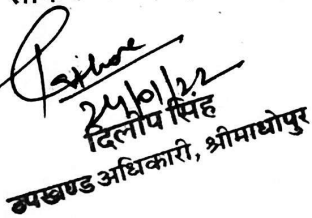 24/01/22
दिलीप सिंह
उपखण्ड अधिकारी, श्रीमाधोपुर